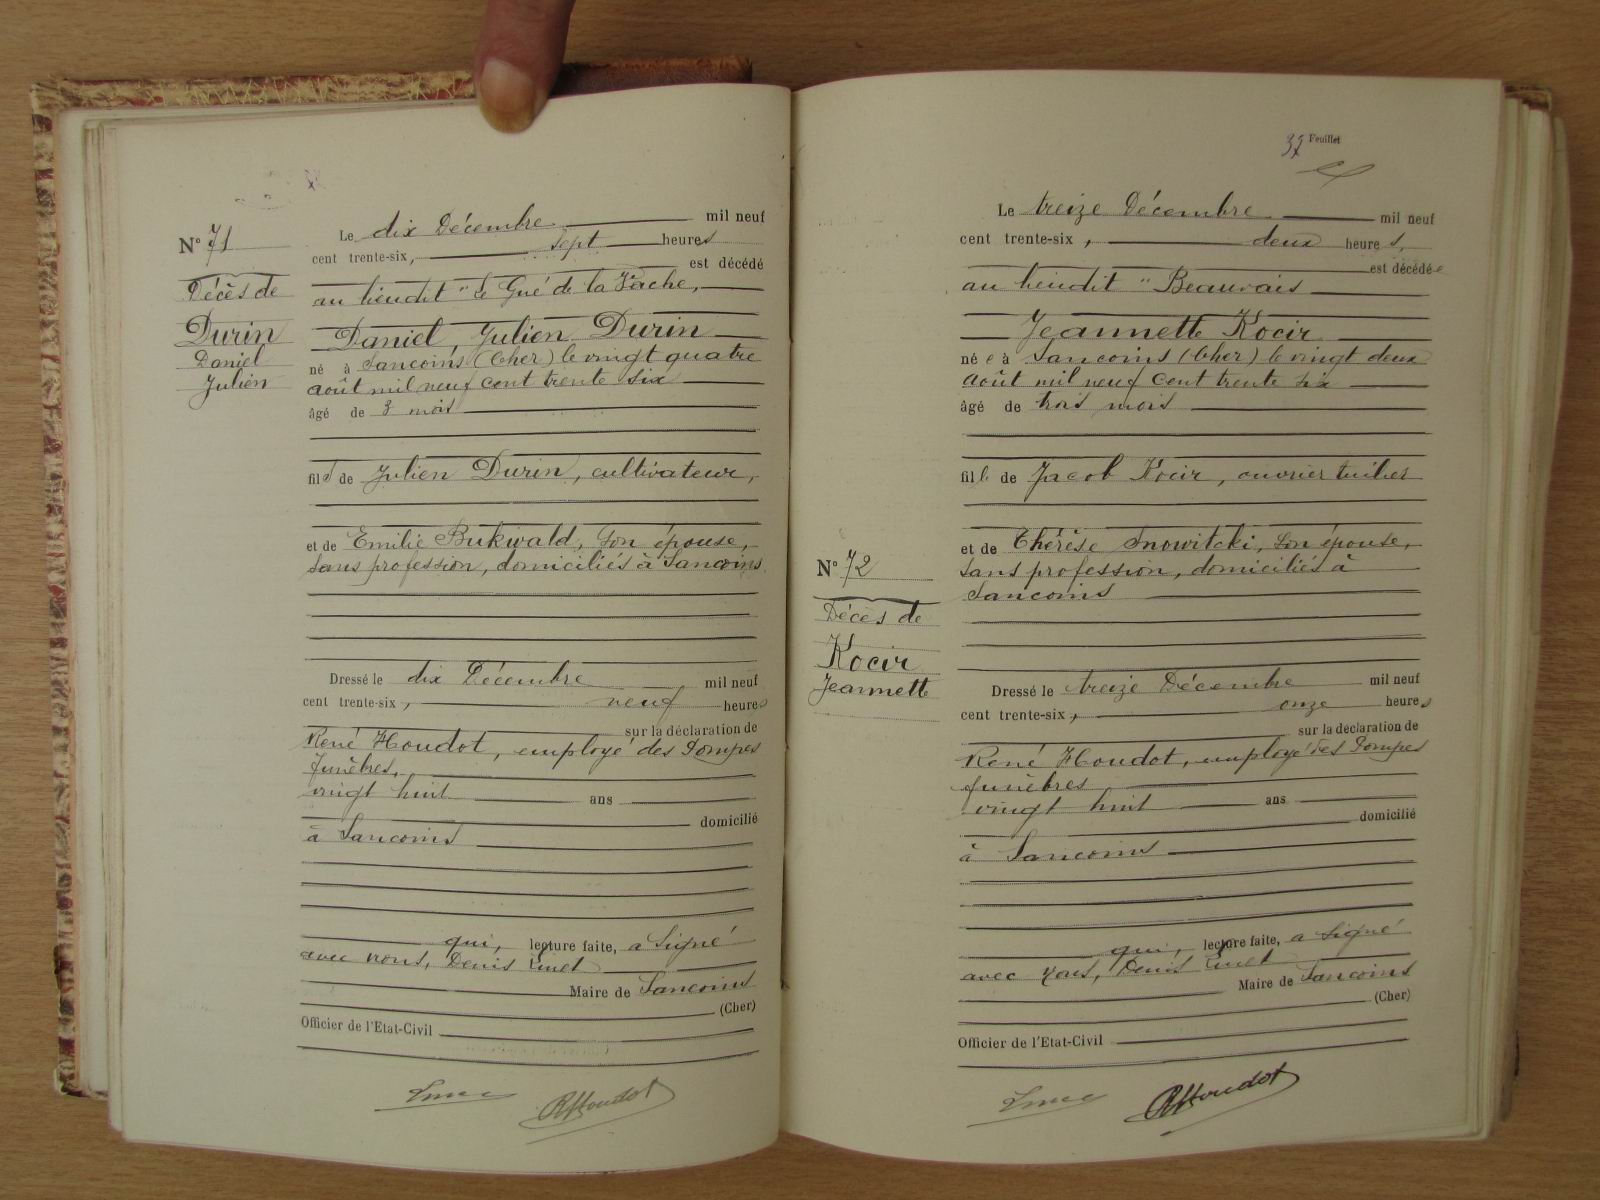 N° 71
Décès de
Durin
Daniel
Julien
Le dix Décembre mil neuf
cent trente-six, sept heures
est décédé
au lieudit "le Gué de la Vache,
Daniel, Julien Durin
né à Sancoins (Cher) le vingt quatre
août mil neuf cent trente six
âgé de 3 mois
fils de Julien Durin, cultivateur,
et de Emilie Bukwald, son épouse,
sans profession, domiciliés à Sancoins
Dressé le dix Décembre mil neuf
cent trente-six, neuf heures
sur la déclaration de
René Houdot, employé des Pompes
funèbres,
vingt huit ans
domicilié
à Sancoins
qui, lecture faite, a signé
avec nous, Denis
Maire de Sancoins
(Cher)
Officier de l'Etat-Civil
RHoudot
37 Feuillet
N° 72
Décès de
Kocir
Jeannette
Le treize Décembre mil neuf
cent trente-six, deux heures,
est décédée
au lieudit "Beauvais
Jeannette Kocir
née à Sancoins (Cher) le vingt deux
août mil neuf cent trente six
âgé de trois mois
fille de Jacob Kocir, ouvrier tuilier
et de Thérèse Snowitcki, son épouse,
sans profession, domiciliés à
Sancoins
Dressé le treize Décembre mil neuf
cent trente-six, onze heures
sur la déclaration de
René Houdot, employé des Pompes
funèbres
vingt huit ans
domicilié
à Sancoins
qui, lecture faite, a signé
avec nous, Denis
Maire de Sancoins
(Cher)
Officier de l'Etat-Civil
RHoudot